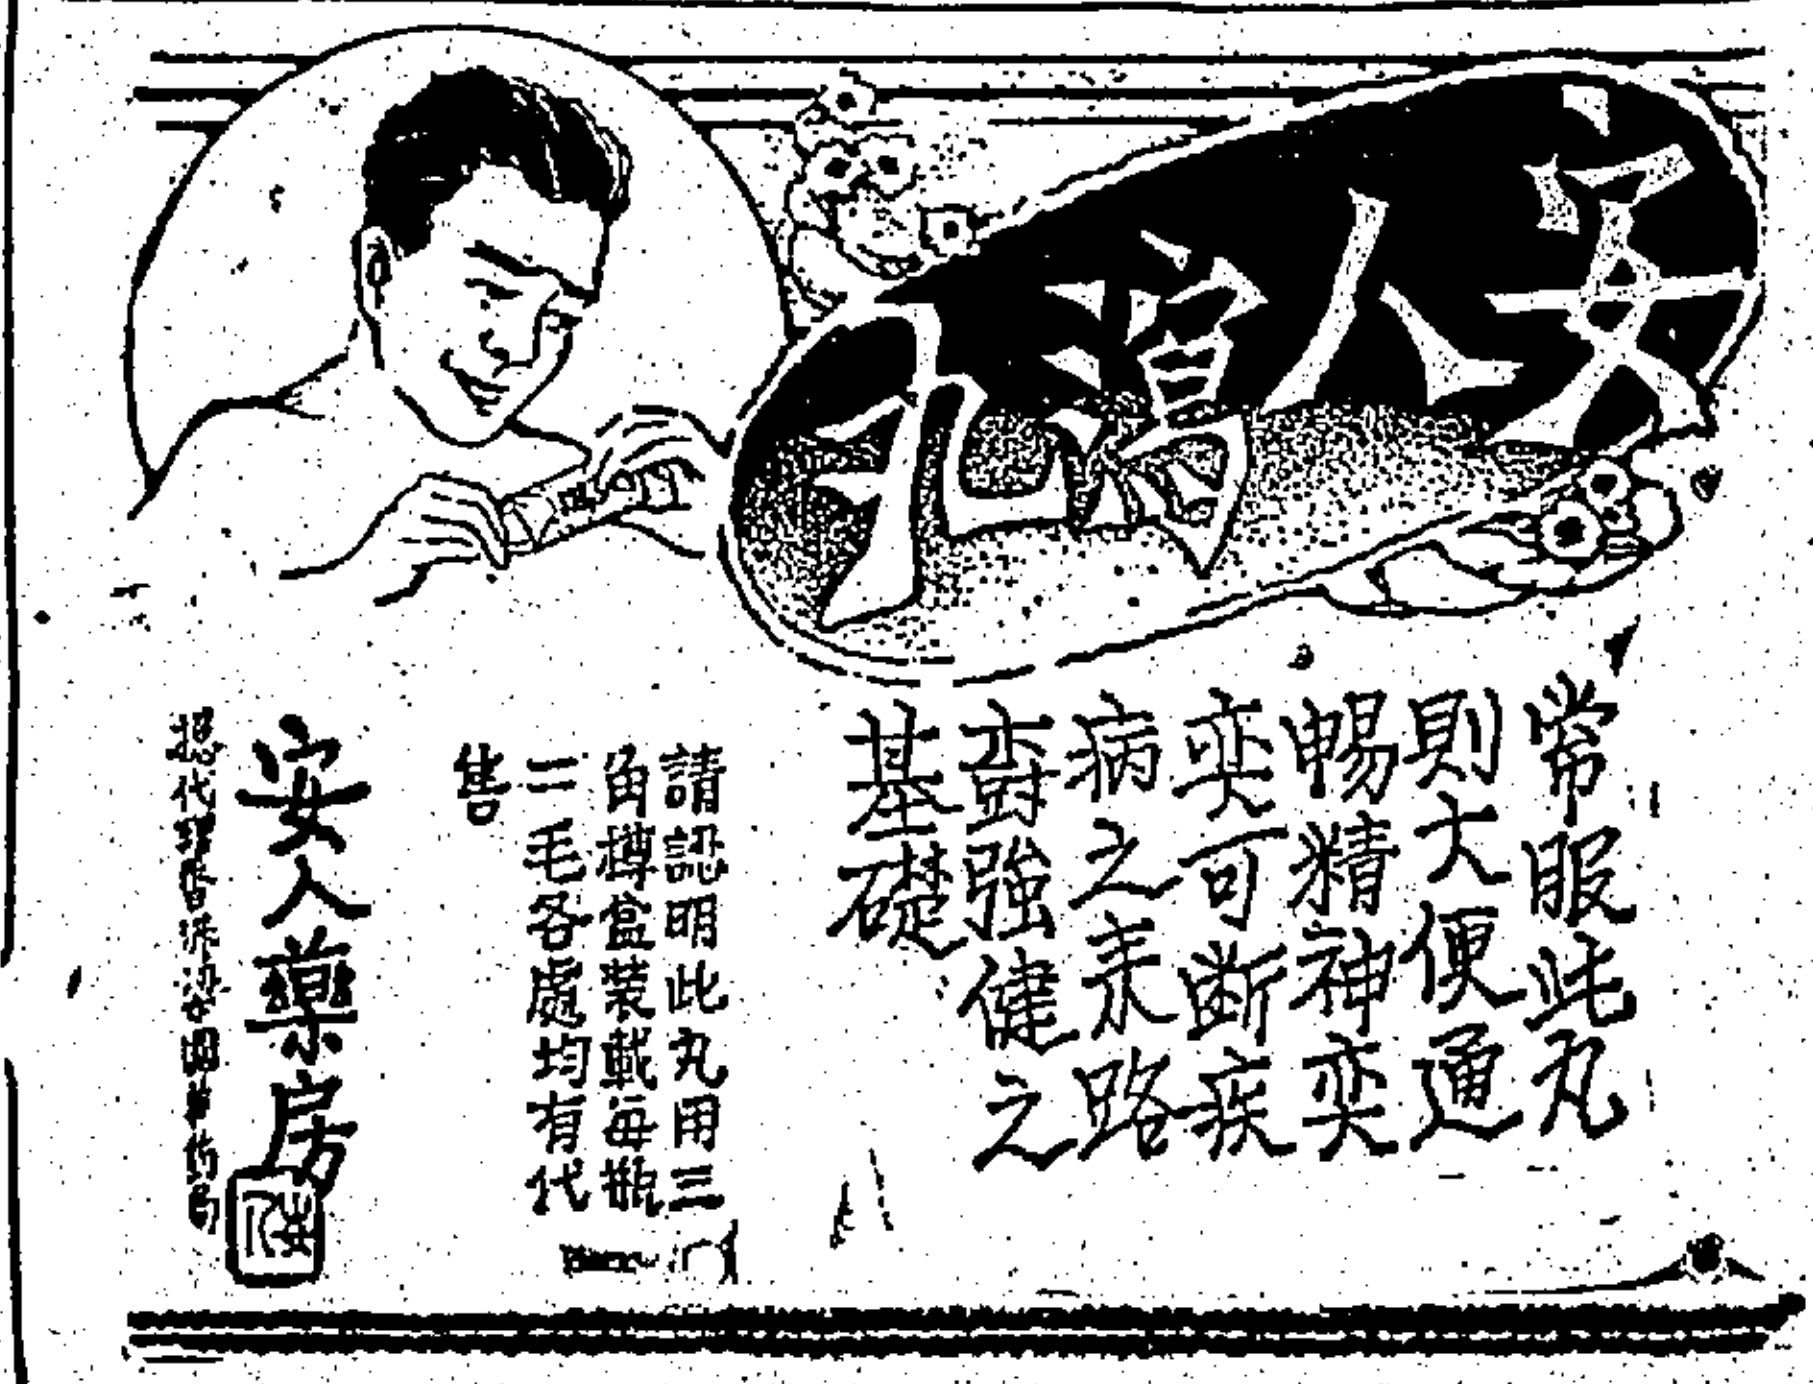 安人瀉丸
常服此丸
則大便通
暢精神奕
奕可斷疾
病之來路
奠強健之
基礎
請認明此丸用三
角樽盒裝載每瓶
二毛各處均有代
售
安人藥房